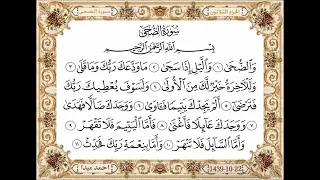 الجزء الثلاثون
سورة الضحى
سُورَةُ الضُّحَى
بِسْمِ اللَّهِ الرَّحْمَٰنِ الرَّحِيمِ
وَالضُّحَىٰ ١ وَاللَّيْلِ إِذَا سَجَىٰ ٢ مَا وَدَّعَكَ رَبُّكَ وَمَا قَلَىٰ ٣
وَلَلْآخِرَةُ خَيْرٌ لَّكَ مِنَ الْأُولَىٰ ٤ وَلَسَوْفَ يُعْطِيكَ رَبُّكَ
فَتَرْضَىٰ ٥ أَلَمْ يَجِدْكَ يَتِيمًا فَـَٔاوَىٰ ٦ وَوَجَدَكَ ضَالًّا فَهَدَىٰ
٧ وَوَجَدَكَ عَائِلًا فَأَغْنَىٰ ٨ فَأَمَّا الْيَتِيمَ فَلَا تَقْهَرْ ٩
وَأَمَّا السَّائِلَ فَلَا تَنْهَرْ ١٠ وَأَمَّا بِنِعْمَةِ رَبِّكَ فَحَدِّثْ ١١
1439-10-22
احمد